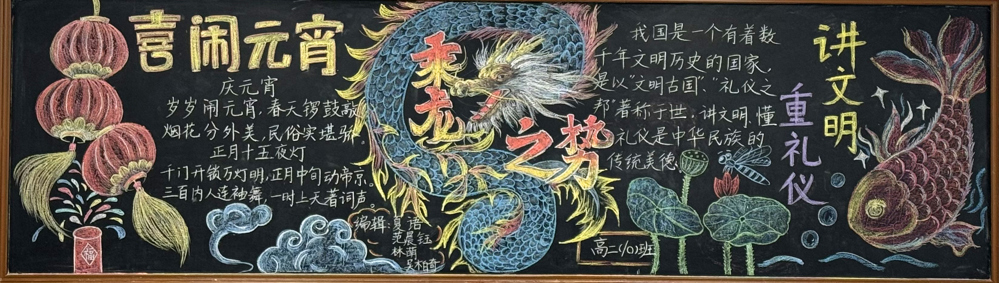 喜闹元宵
庆元宵
岁岁闹元宵,春天锣鼓敲。
烟花分外美,民俗实堪骄。
正月十五夜灯
千门开锁万灯明,正月中旬动帝京。
三百内人连袖舞,一时上天著词声。
编辑:夏语
范晨钰
林萌
福
乘龙
之势
我国是一个有着数
千年文明历史的国家、
是以“文明古国”、礼仪之
邦”著称于世.讲文明,懂
礼仪是中华民族的
传统美德
高二(10)班
讲文明
重礼仪